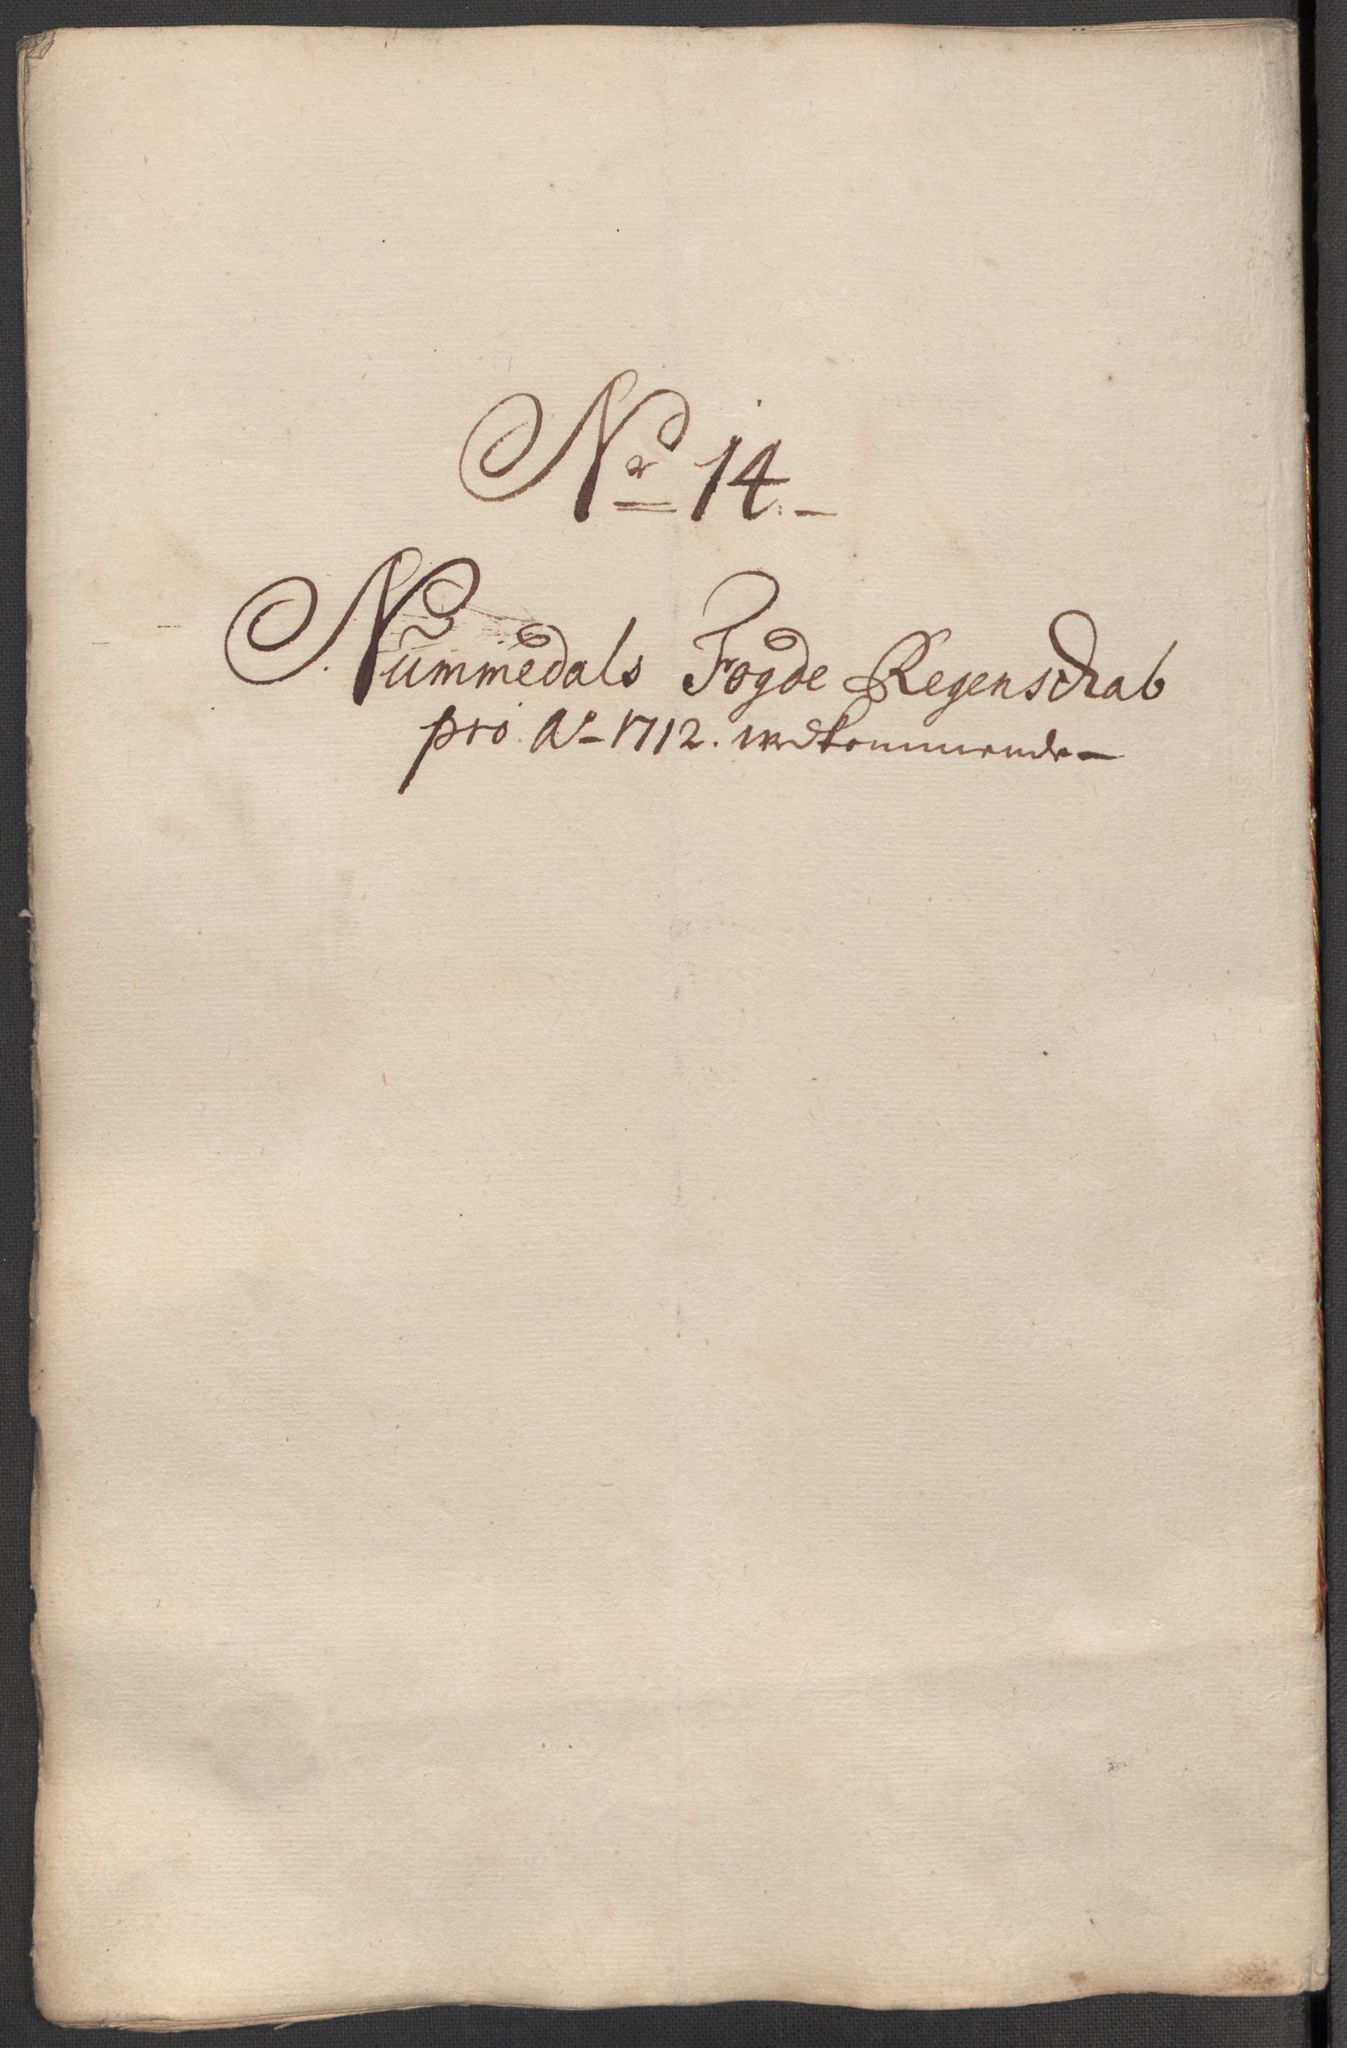 Nr 14.
Nummedals Fogde Regenschab
pro Ao 1712. vedkommende